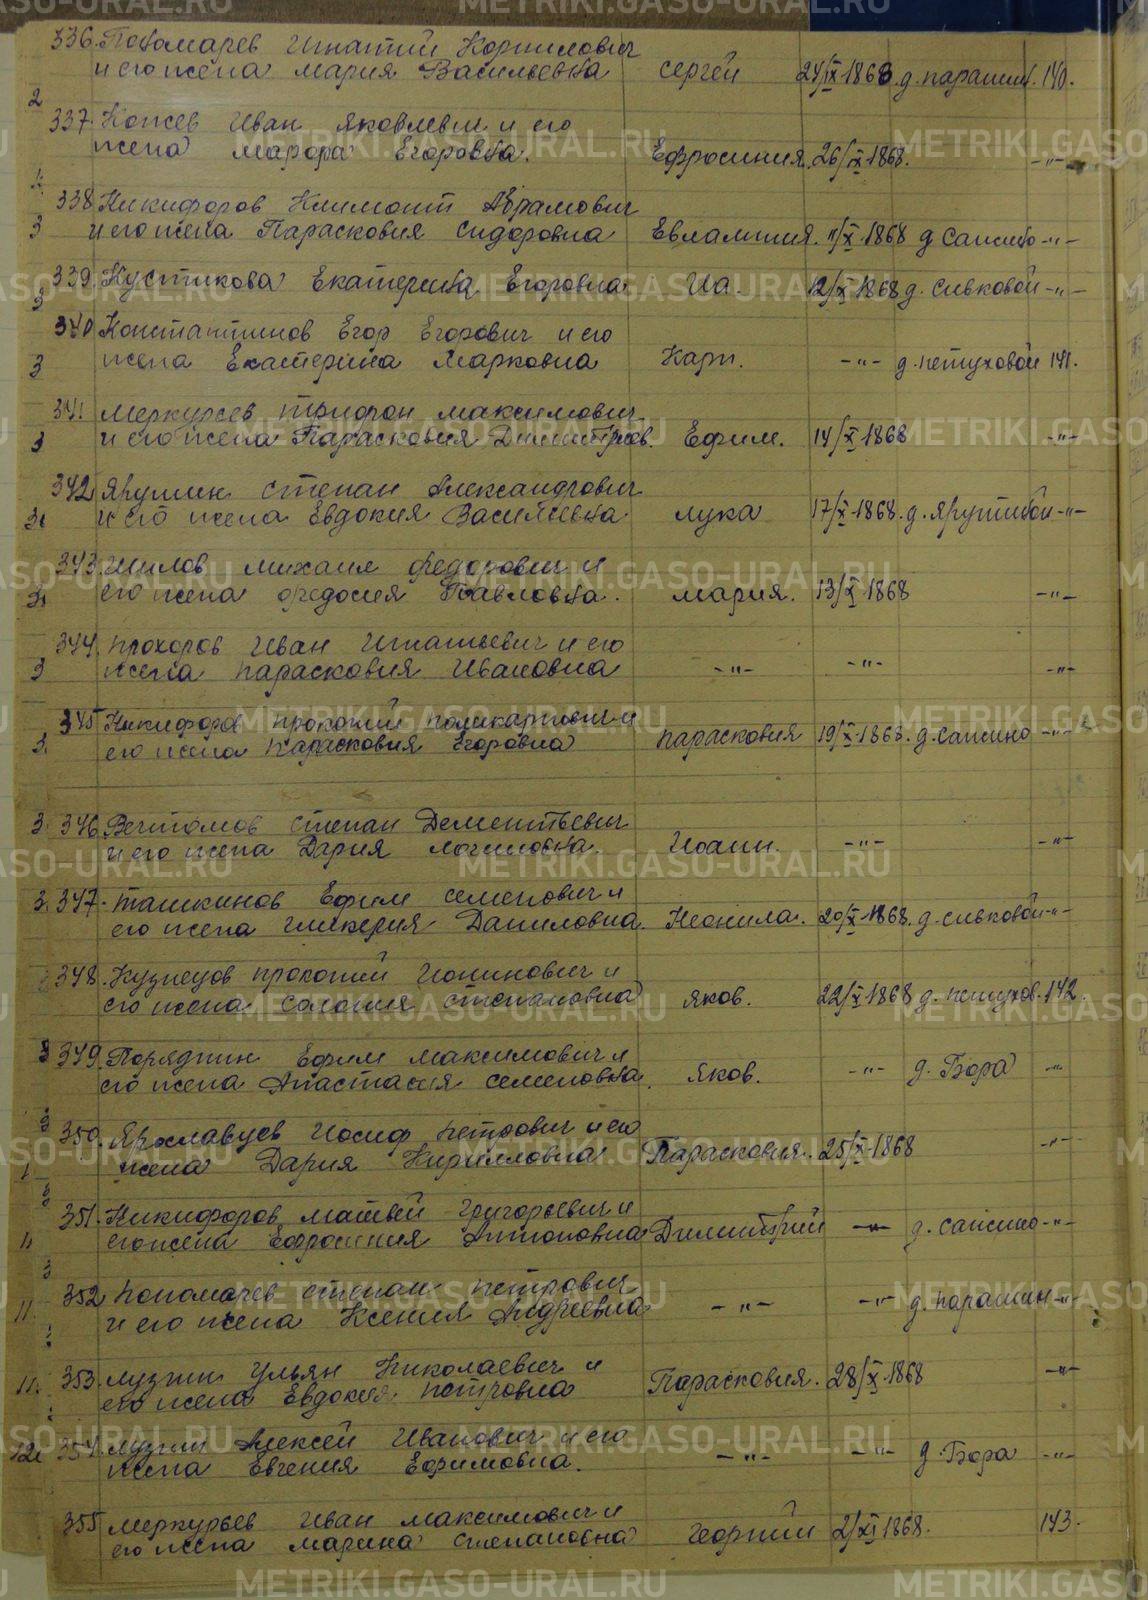 336. Пономарев Игнатий Корнилович
и его жена Мария Васильевна Сергей 24/IX-1868. д. Парашин. 140.
2
337. Кожев Иван Яковлевич и его
жена Марфа Егоровна. Ефросиния. 26/IX-1868. -"-
338 Никифоров Климонт Абрамович
3 и его жена Парасковия Сидоровна Евлампия. 11/X-1868 д Сапсино -"-
339. Кустикова Екатерина Егоровна Иа. 12/X-1868 д. Сивковой -"-
3
340 Константинов Егор Егорович и его
3 жена Екатерина Марковна Карп. -"- д. Петуховой 141.
341 Меркурьев Трифон Максимович
3 и его жена Парасковия Димитриев. Ефим. 14/X-1868 -"-
342 Ярушин Степан Александрович
и его жена Евдокия Васильевна Лука 17/X-1868. д. Ярушиной -"-
343. Шилов Михаил Федорович и
его жена Федосия Павловна. Мария. 13/X-1868 -"-
344. Прохоров Иван Игнатьевич и его
3 жена Парасковия Ивановна -"- -"- -"-
345 Никифоров Прокопий Поликарпович и
3. его жена Парасковия Егоровна Парасковия 19/X-1868. д. Сапсино -"-
3. 346. Степан Дементьевич
и его жена Дария Логиновна. Иоанн. -"- -"-
3. 347. Ташкинов Ефим Семенович и
его жена Гликерия Даниловна. Неонила. 20/X-1868. д. Сивковой -"-
348. Кузнецов Прокопий Ионинович и
его жена Соломия Степановна Яков. 22/X-1868 д. Петухов. 142.
3 349. Порядкин Ефим Максимович и
его жена Анастасия Семеновна. Яков. -"- д. Бора -"-
3
350. Ярославцев Иосиф Петрович и его
жена Дария Кирилловна Парасковия. 25/X-1868 -"-
3
351. Никифоров Матвей Григорьевич и
11 его жена Ефросиния Антоновна Димитрий -"- д. Сапсино -"-
3
352 Пономарев Степан Петрович
11. и его жена Ксения Андреевна -"- -"- д. Парашин -"-
11. 353. Лузин Ульян Николаевич и
его жена Евдокия Петровна Парасковия. 28/X-1868 -"-
354. Лузин Алексей Иванович и его
жена Евгения Ефимовна. -"- -"- д. Бора -"-
355 Меркурьев Иван Максимович и
его жена Марина Степановна Георгий 2/XI 1868. 143.
METRIKI.GASO-URAL.RU